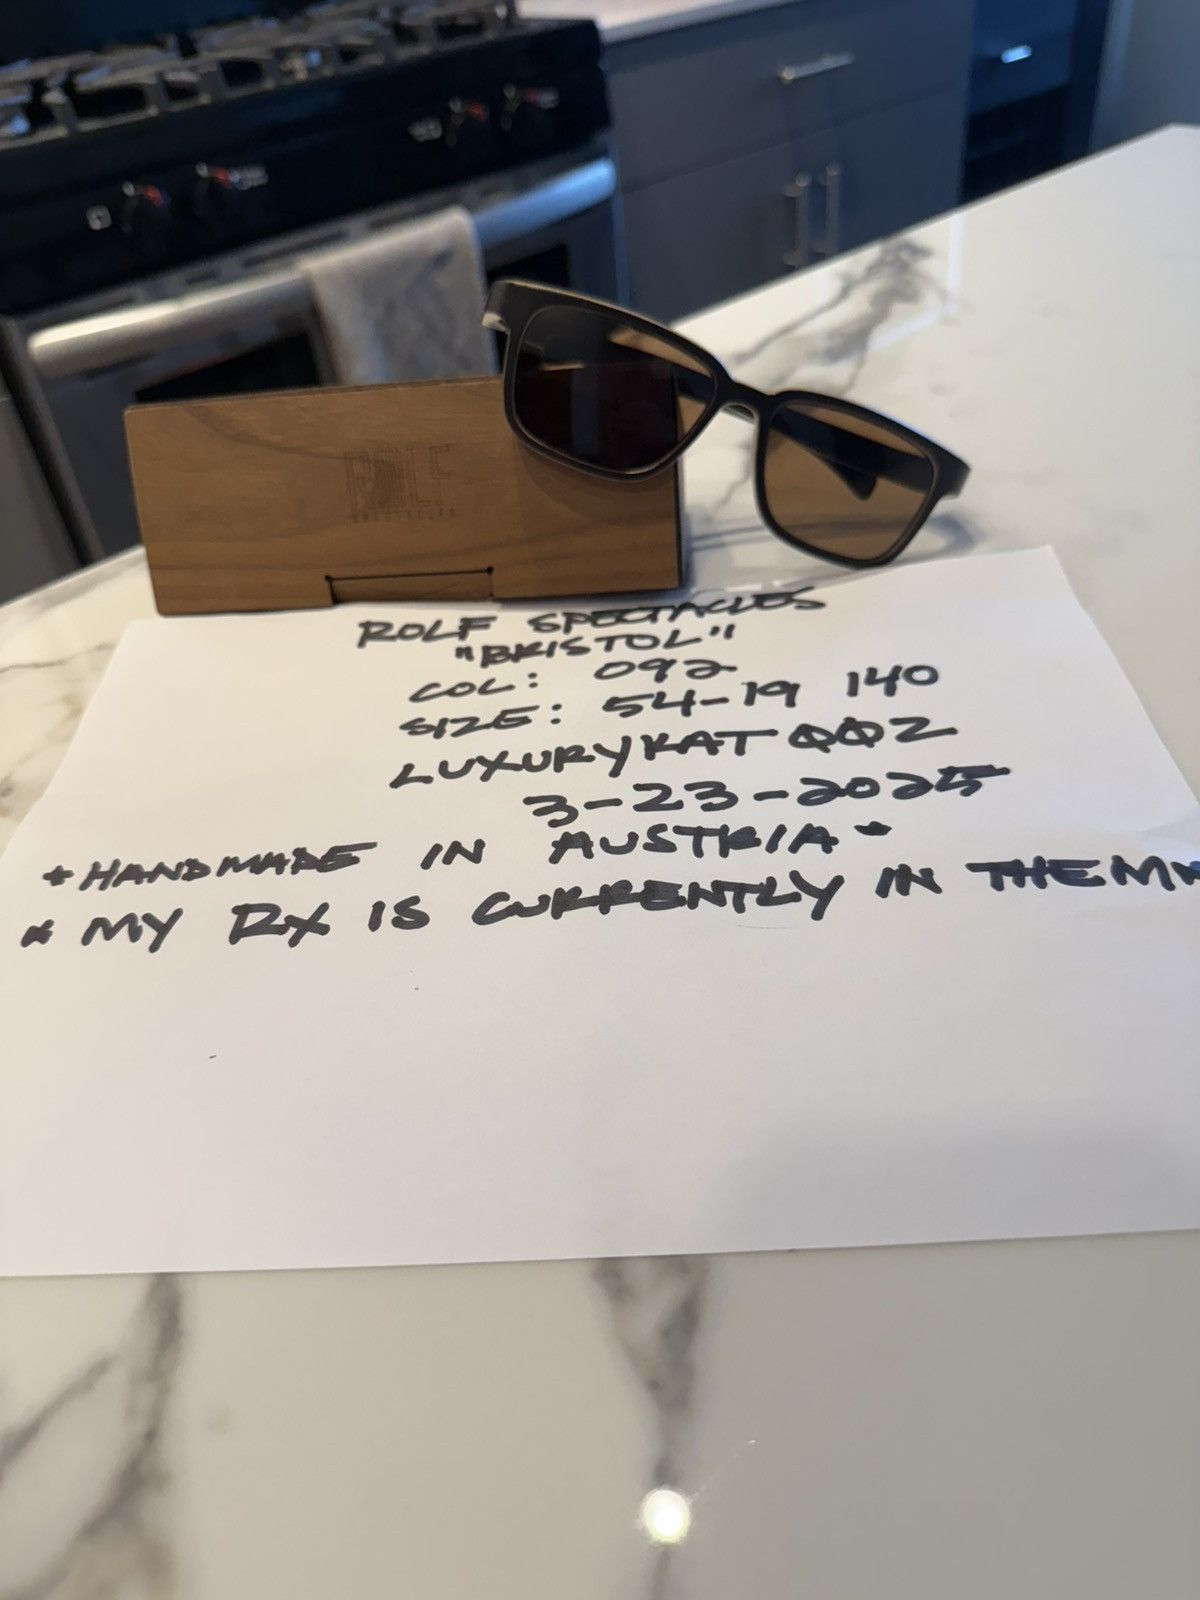 ROLF
SPECTACLES
ROLF SPECTACLES
"BRISTOL"
COL: 092
SIZE: 54-19 140
LUXURYKATØØZ
3-23-2025
*HANDMADE IN AUSTRIA*
* MY RX IS CURRENTLY IN THEM*